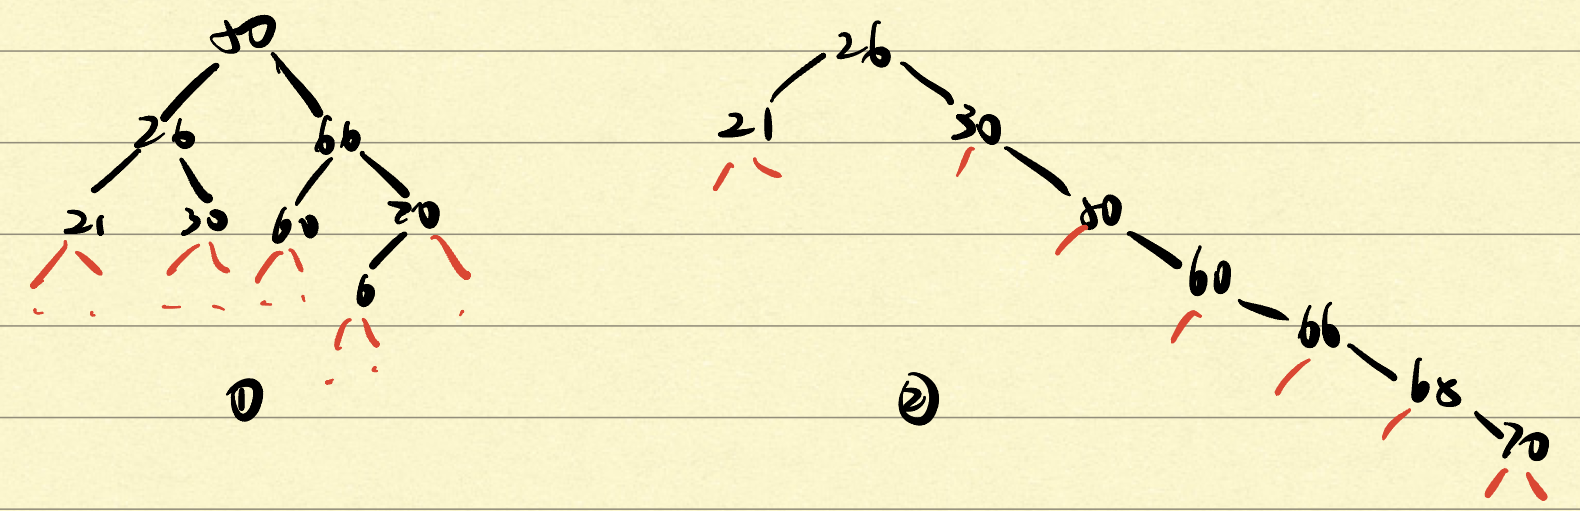 50
26 66
21 30 60 70
6
①
26
21 30
50
60
66
68
70
②